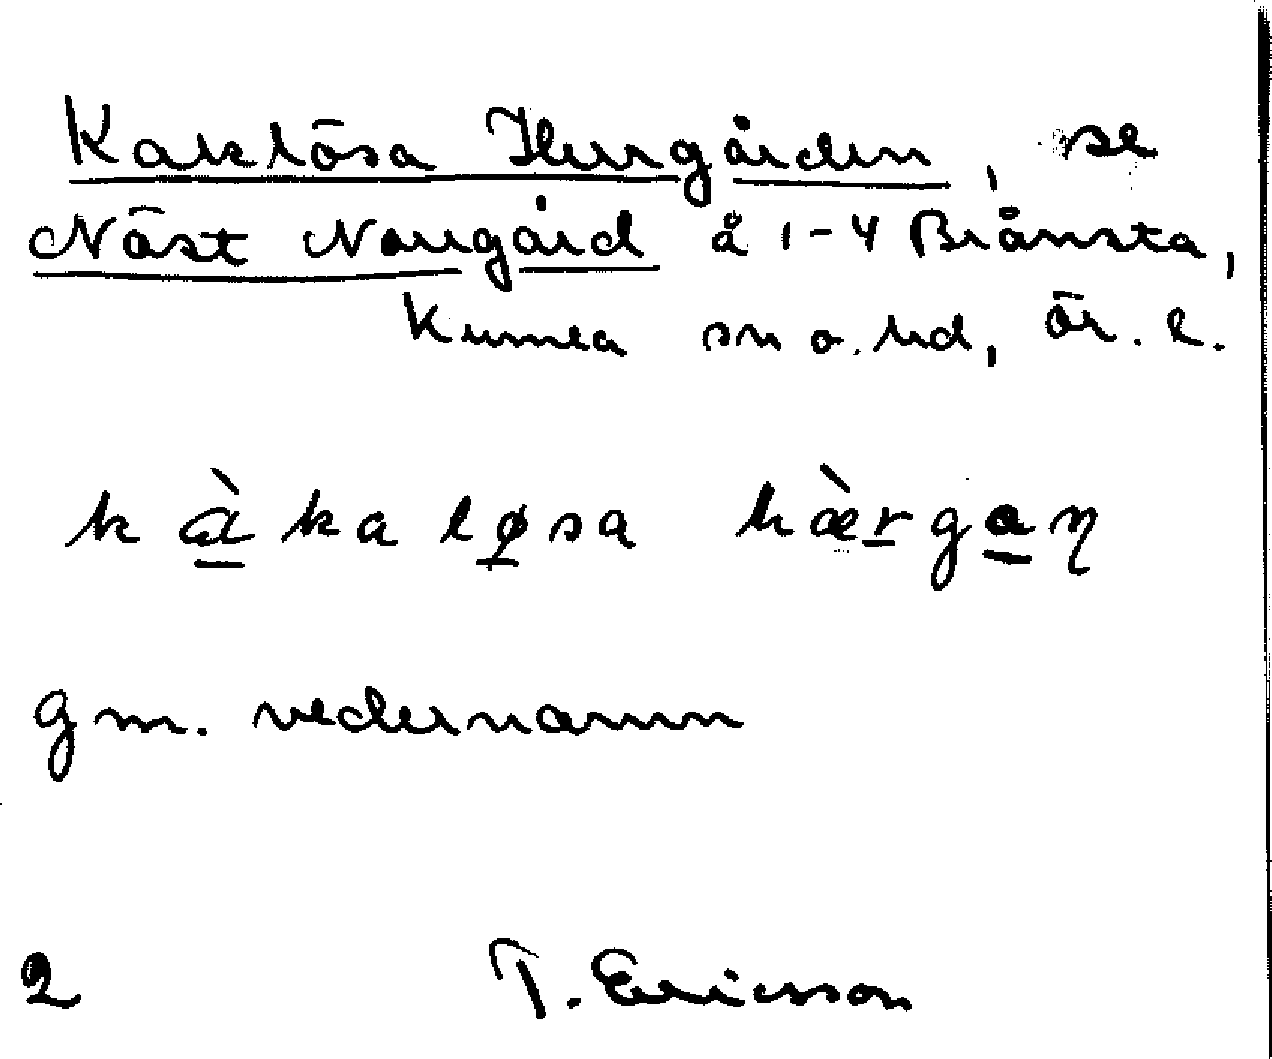 Kaklösa Herrgården, se
Näst Norrgård å 1-4 Brånsta,
Kumla sn o. hd, Ör. l.
kàkaløsa hærgaɳ
gm. vedernamn
2 T. Ericsson